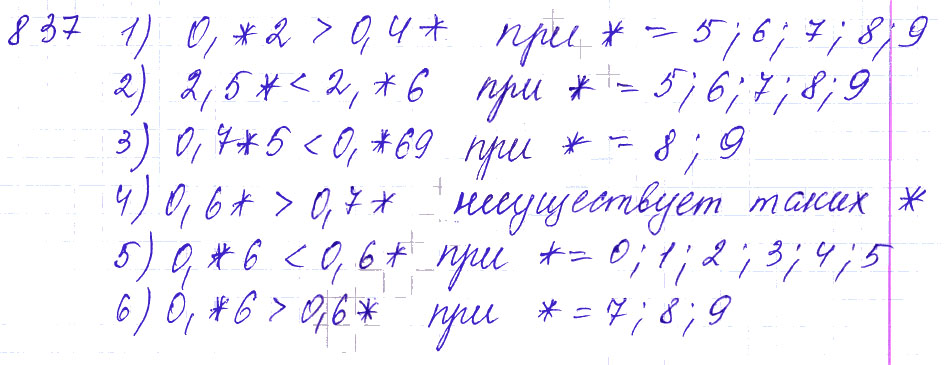 837 1) 0,*2 > 0,4* при * = 5; 6; 7; 8; 9
2) 2,5* < 2,*6 при * = 5; 6; 7; 8; 9
3) 0,7*5 < 0,*69 при * = 8; 9
4) 0,6* > 0,7* несуществует таких *
5) 0,*6 < 0,6* при * = 0; 1; 2; 3; 4; 5
6) 0,*6 > 0,6* при * = 7; 8; 9